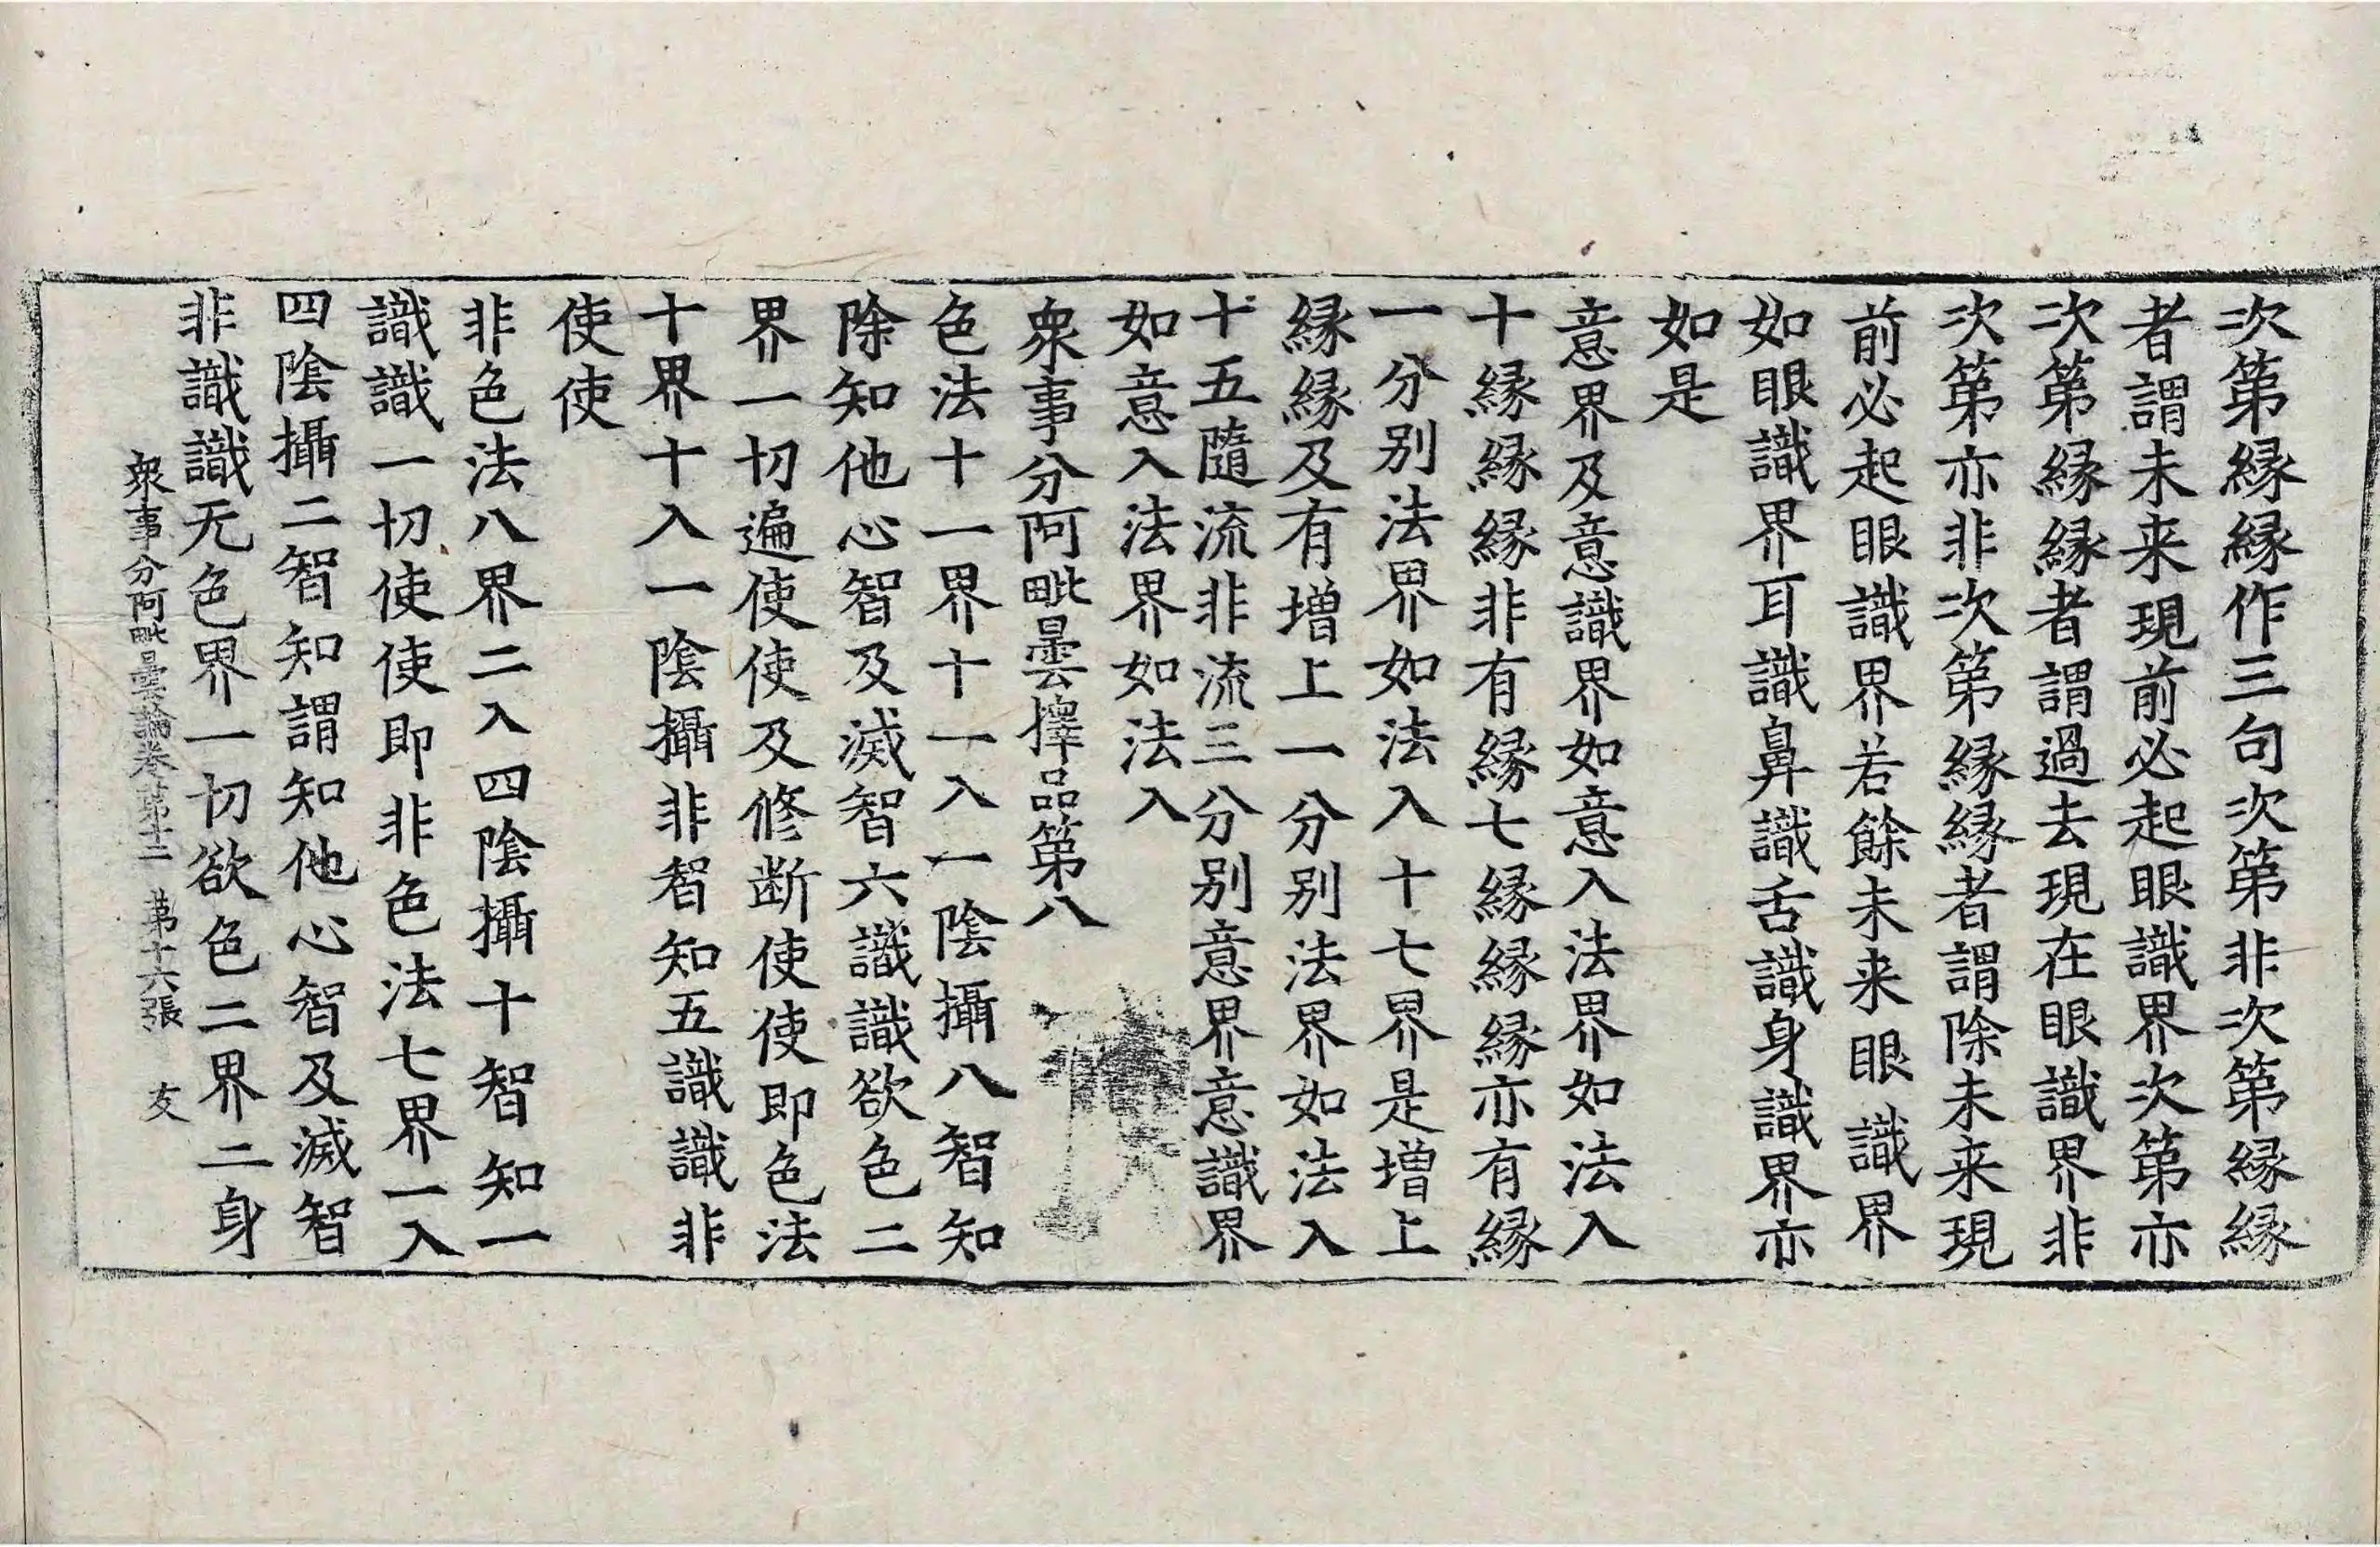 次第縁縁作三句次第非次第縁縁
者謂未来現前必起眼識界次第亦
次第縁縁者謂過去現在眼識界非
次第亦非次第縁縁者謂除未来現
前必起眼識界若餘未来眼識界
如眼識界耳識鼻識舌識身識界亦
如是
意界及意識界如意入法界如法入
十縁縁縁非有縁七縁縁縁亦有縁
一分别法界如法入十七界是増上
縁縁及有増上一分别法界如法入
十五隨流非流三分别意界意識界
如意入法界如法入
衆事分阿毗曇擇品第八
色法十一界十一入一陰攝八智知
除知他心智及滅智六識識欲色二
界一切遍使使及修断使使即色法
十界十入一陰攝非智知五識識非
使使
非色法八界二入四陰攝十智知一
識識一切使使即非色法七界一入
四陰攝二智知謂知他心智及滅智
非識識无色界一切欲色二界二身
衆事分阿毗曇論卷第十二 第十六張 友